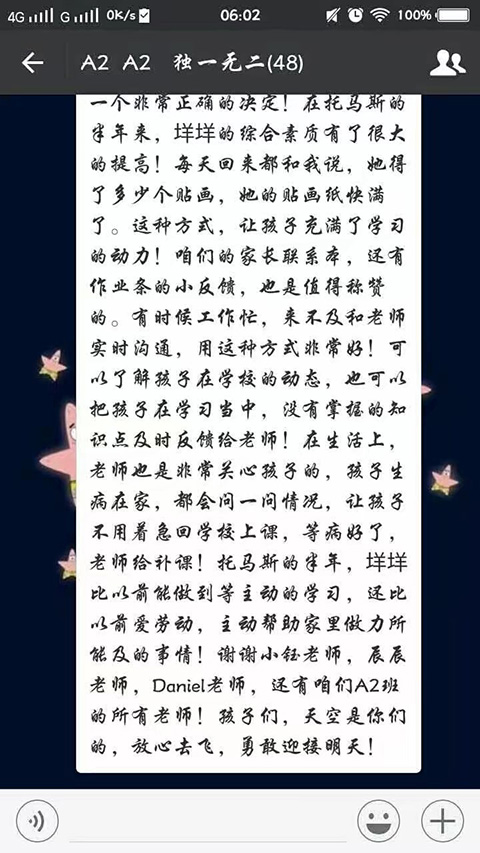 4G G 0K/s 06:02 100%
A2 A2 独一无二(48)
一个非常正确的决定！在托马斯的
半年来，垟垟的综合素质有了很大
的提高！每天回来都和我说，她得
了多少个贴画，她的贴画纸快满
了。这种方式，让孩子充满了学习
的动力！咱们的家长联系本，还有
作业条的小反馈，也是值得称赞
的。有时候工作忙，来不及和老师
实时沟通，用这种方式非常好！可
以了解孩子在学校的动态，也可以
把孩子在学习当中，没有掌握的知
识点及时反馈给老师！在生活上，
老师也是非常关心孩子的，孩子生
病在家，都会问一问情况，让孩子
不用着急回学校上课，等病好了，
老师给补课！托马斯的半年，垟垟
比以前能做到等主动的学习，还比
以前爱劳动，主动帮助家里做力所
能及的事情！谢谢小钰老师，辰辰
老师，Daniel老师，还有咱们A2班
的所有老师！孩子们，天空是你们
的，放心去飞，勇敢迎接明天！